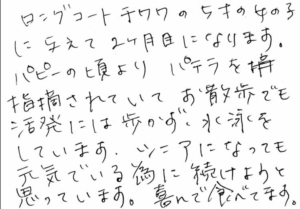 ロングコートチワワの5才の女の子
に与えて2ヶ月目になります。
パピーの頃より パテラを
指摘されていて お散歩でも
活発には歩かず、水泳を
しています。シニアになっても
元気でいる為に続けようと
思っています。喜んで食べてます。